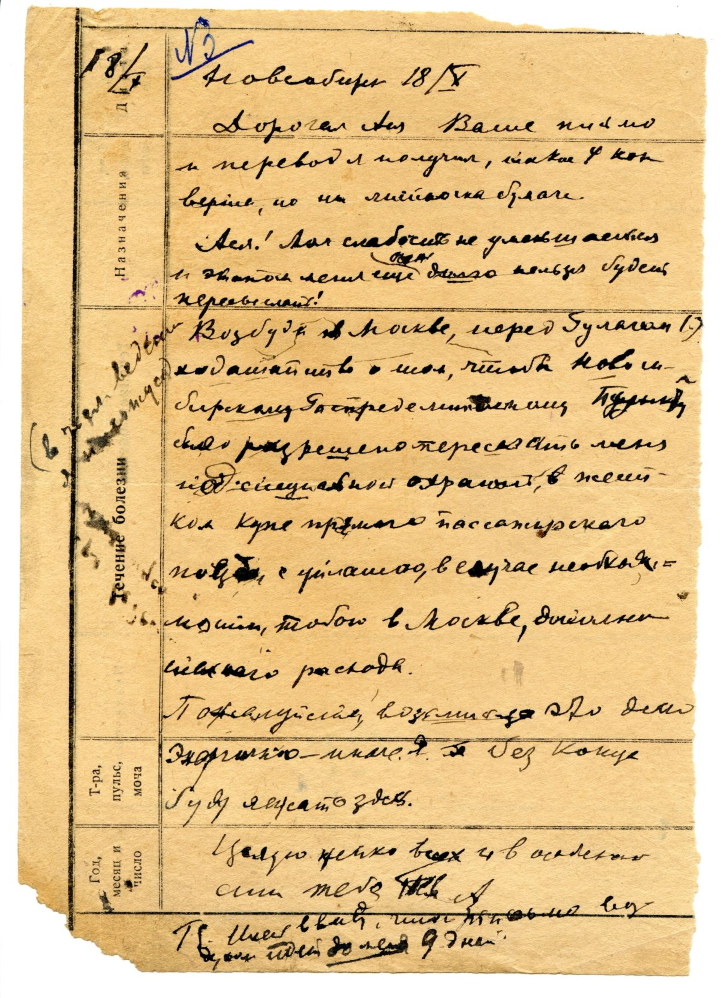 №2
18/X
Новосибирск 18/X
Дорогая Ася Ваше письмо
и перевод я получил, также 4 кон
верта, но ни листочка бумаги.
Ася! Моя слабость не уменьшается
и этапом меня еще долго нельзя будет
пересылать!
Возбуди в Москве, перед Гулагом
ходатайство о том, чтобы Новоси-
бирскому Распределительному Пункту
было разрешено переслать меня
под специальной охраной, в жест-
ком купе прямого пассажирского
поезда, с уплатою, в случае необходи=
мости, тобою в Москве, дополни
тельного расхода.
Пожалуйста, возьмитесь за это дело
энергично – иначе я без конца
буду лежать здесь.
Целую всех и в особенно
сти тебя А
Имей ввиду, что письмо воз
духом идет до меня 9 дней.
(в чем ведении
я нахожусь)
Дни
Назначения
Течение болезни
Т-ра,
пульс,
моча
Год,
месяц и
число